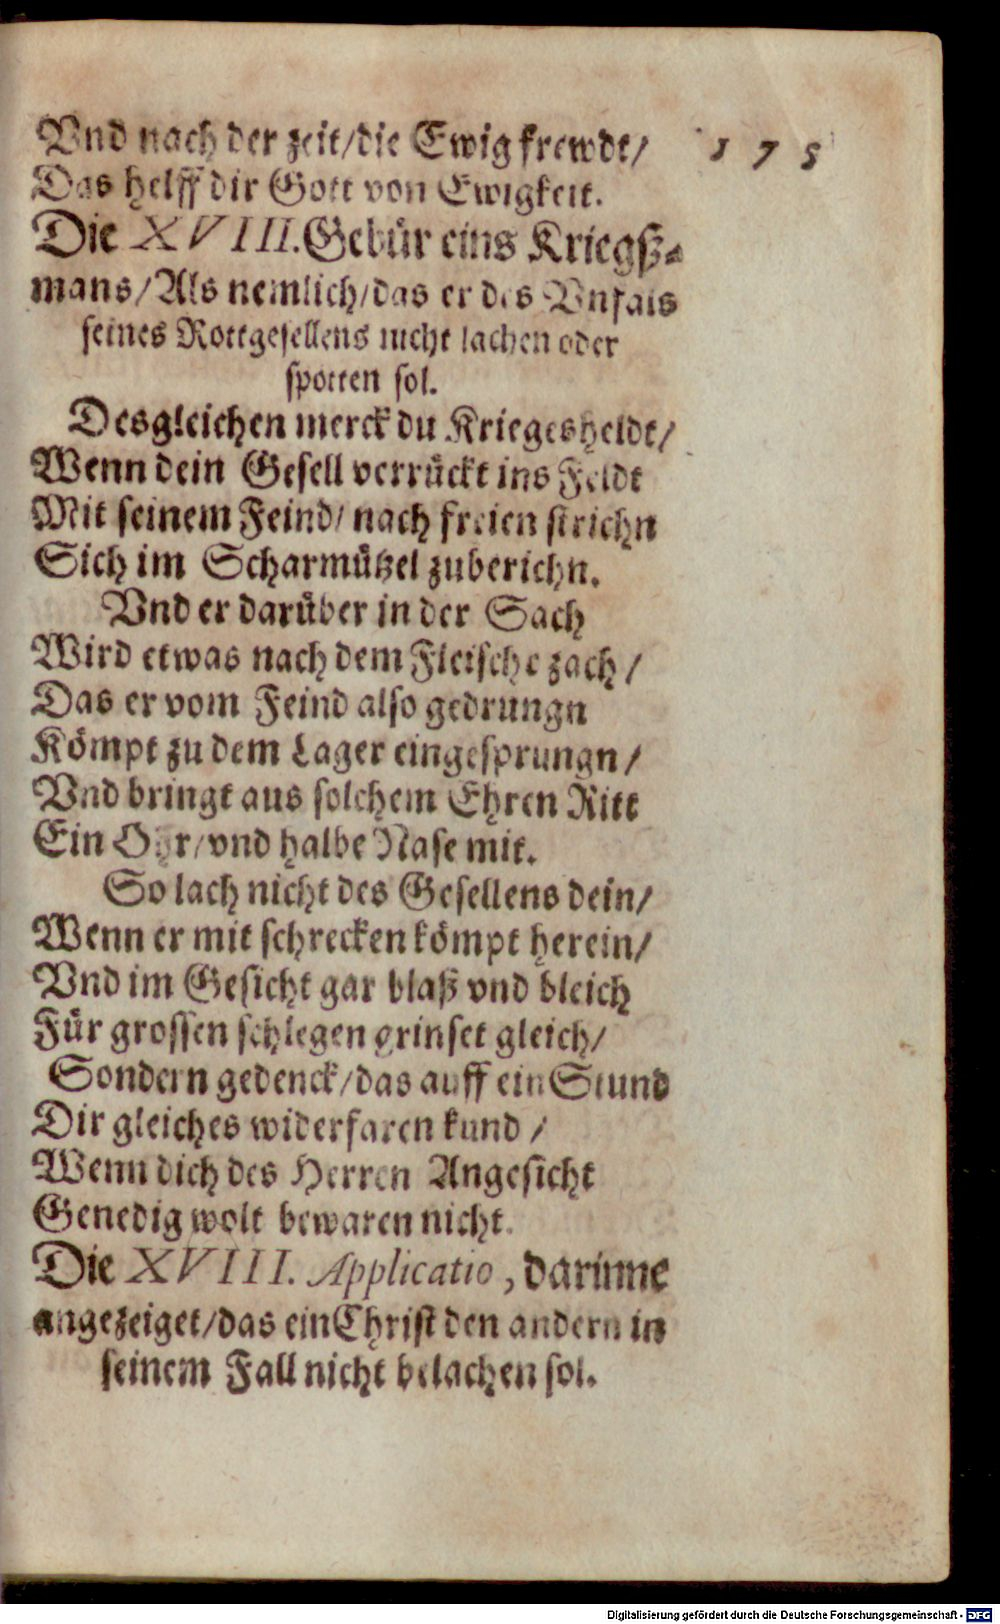 Vnd nach der zeit/die Ewig frewdt/
175
Das helff dir Gott von Ewigkeit.
Die XVIII. Gebür eins Kriegß-
mans/Als nemlich/das er des Vnfals
seines Rottgesellens nicht lachen oder
spotten sol.
Desgleichen merck du Kriegesheldt/
Wenn dein Gesell verrückt ins Feldt
Mit seinem Feind/ nach freien strichn
Sich im Scharmützel zuberichn.
Vnd er darüber in der Sach
Wird etwas nach dem Fleische zach/
Das er vom Feind also gedrungn
Kömpt zu dem Lager eingesprungn/
Vnd bringt aus solchem Ehren Ritt
Ein Ohr/vnd halbe Nase mit.
So lach nicht des Gesellens dein/
Wenn er mit schrecken kömpt herein/
Vnd im Gesicht gar blaß vnd bleich
Für grossen schlegen grinset gleich/
Sondern gedenck/das auff ein Stund
Dir gleiches widerfaren kund/
Wenn dich des Herren Angesicht
Genedig wolt bewaren nicht.
Die XVIII. Applicatio, darinne
angezeiget/das ein Christ den andern in
seinem Fall nicht belachen sol.
Digitalisierung gefördert durch die Deutsche Forschungsgemeinschaft - DFG